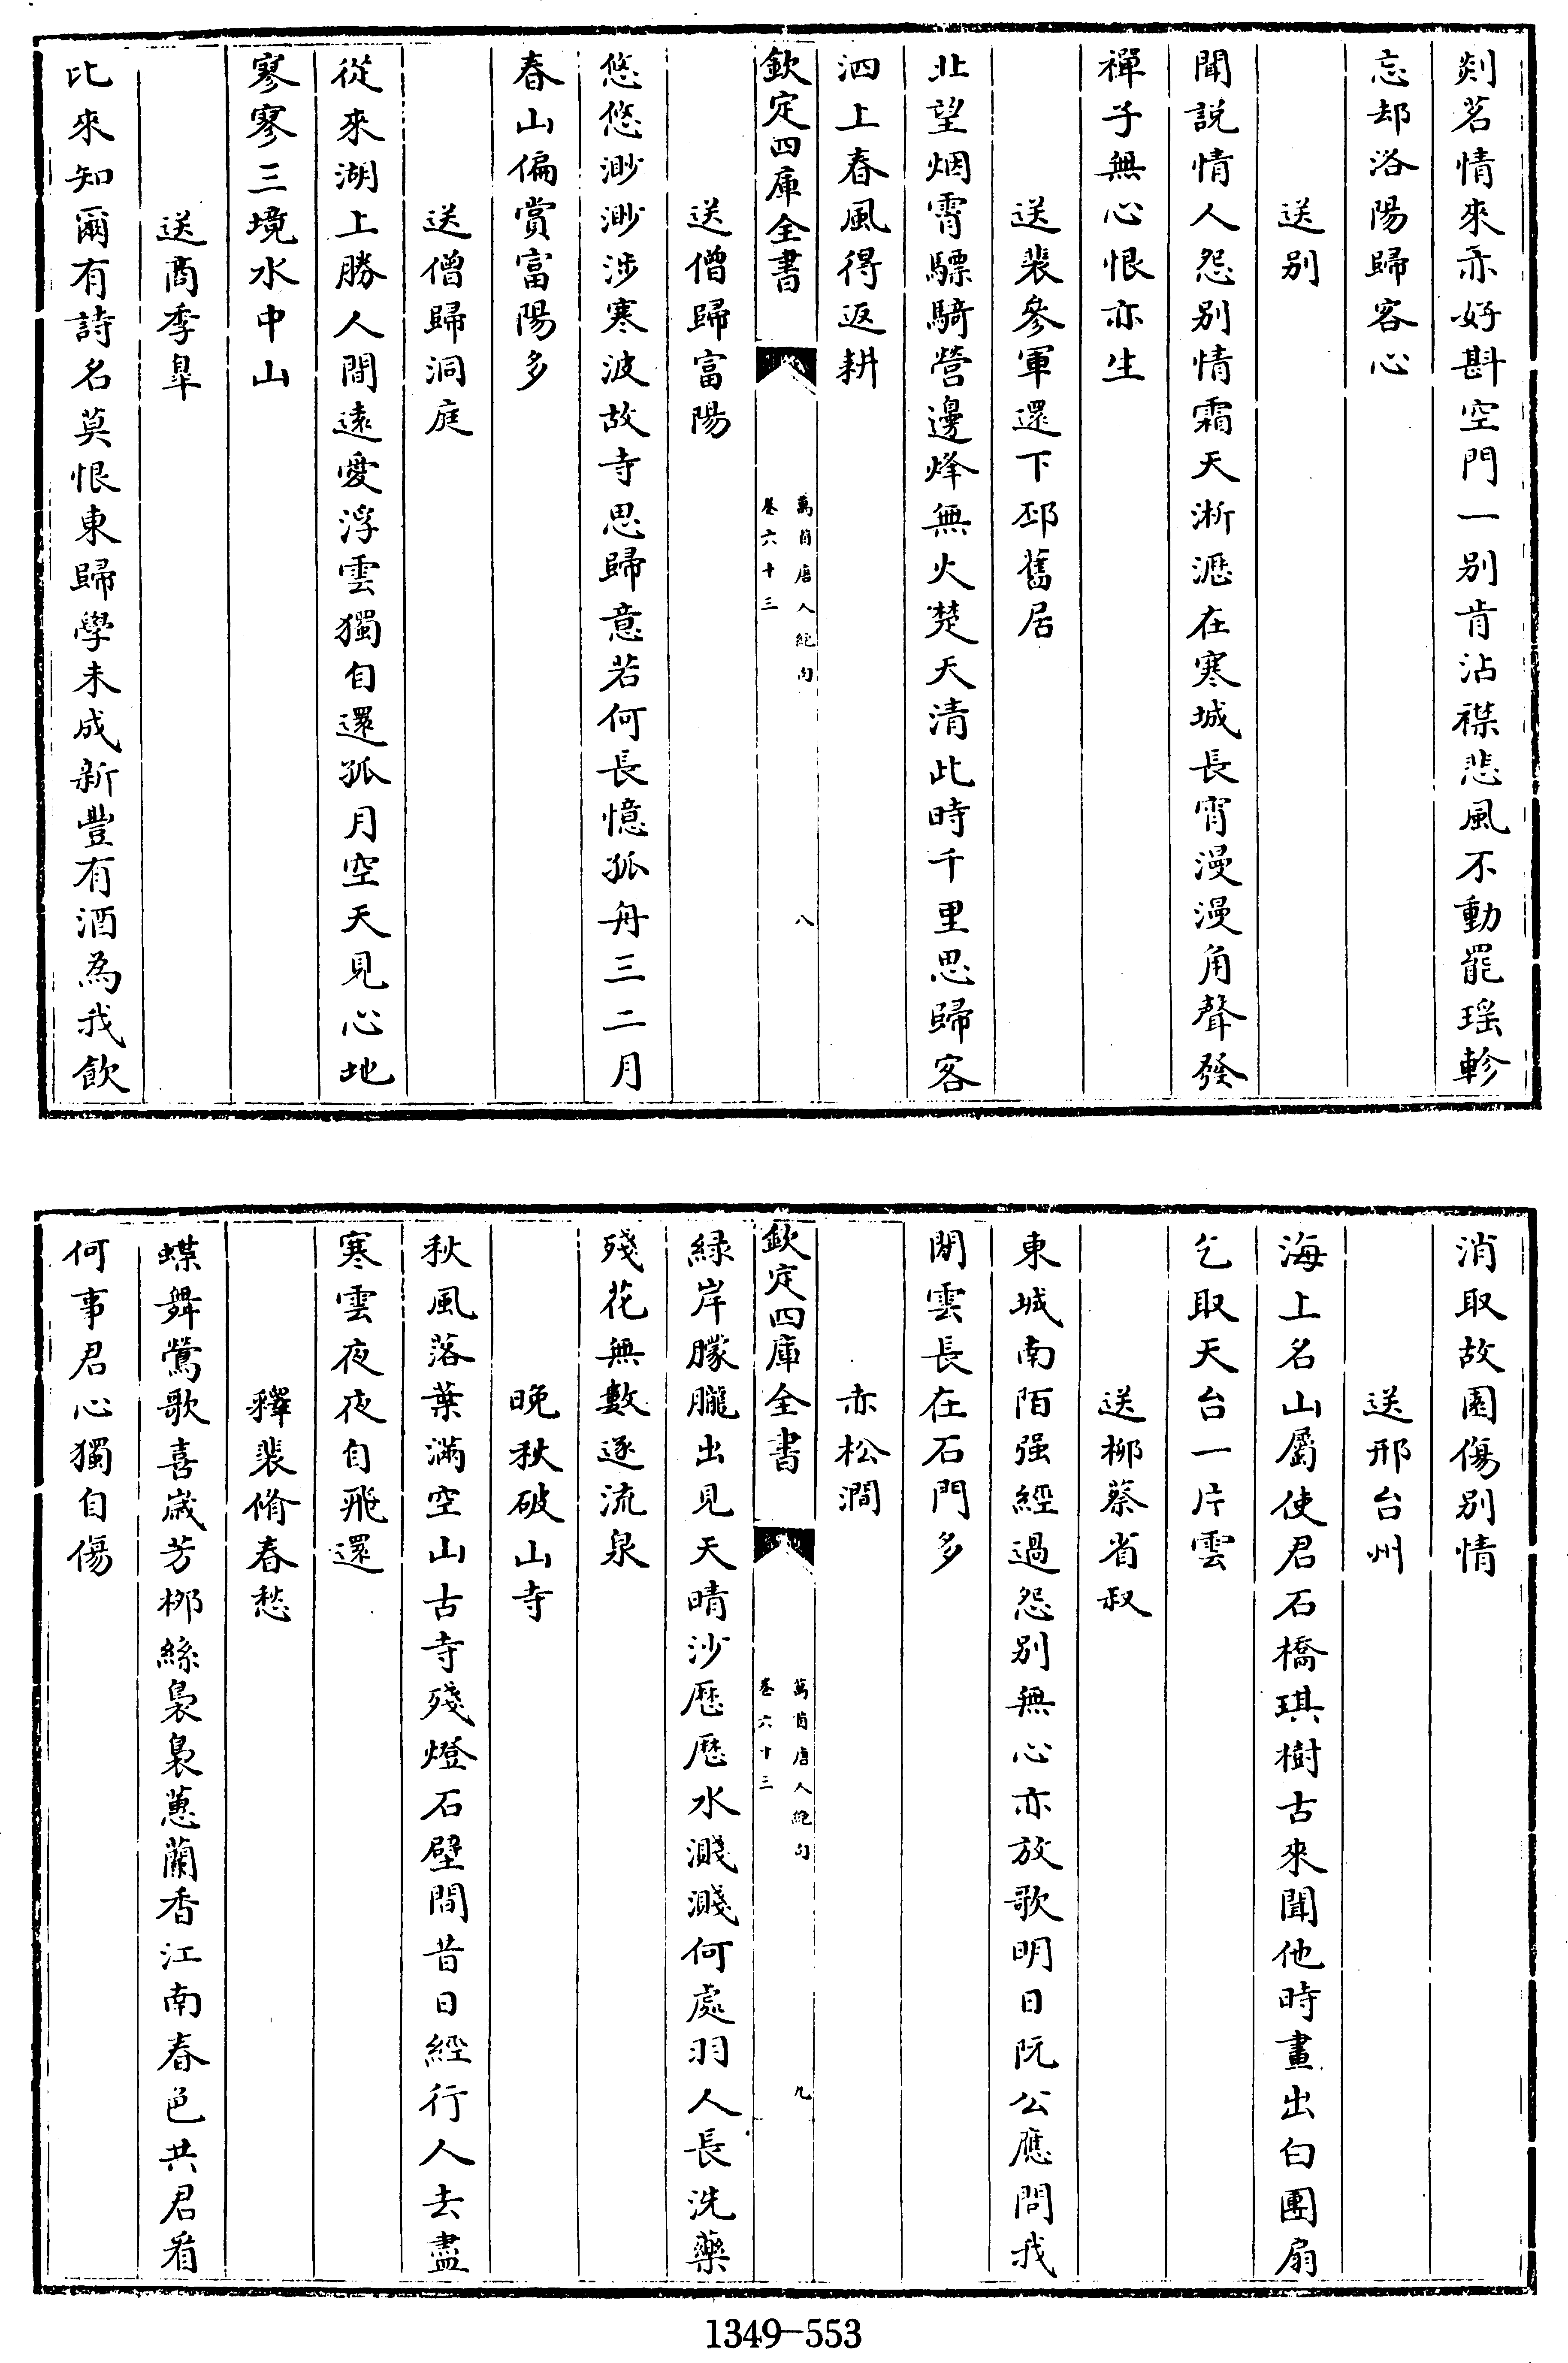 剡茗情來亦好斟空門一别肯沾襟悲風不動罷瑶軫
忘却洛陽歸客心
送别
聞説情人怨别情霜天淅瀝在寒城長宵漫漫角聲發
禪子無心恨亦生
送裴參軍還下邳舊居
北望烟霄驃騎營邊烽無火楚天清此時千里思歸客
泗上春風得返耕
欽定四庫全書
萬首唐人絶句
卷六十三
八
送僧歸富陽
悠悠渺渺涉寒波故寺思歸意若何長憶孤舟三二月
春山偏賞富陽多
送僧歸洞庭
從來湖上勝人間遠愛浮雲獨自還孤月空天見心地
寥寥三境水中山
送商季臯
比來知爾有詩名莫恨東歸學未成新豐有酒為我飲
消取故園傷别情
送邢台州
海上名山屬使君石橋琪樹古來聞他時畫出白團扇
乞取天台一片雲
送栁蔡省叔
東城南陌强經過怨别無心亦放歌明日阮公應問我
閒雲長在石門多
赤松澗
欽定四庫全書
萬首唐人絶句
卷六十三
九
緑岸朦朧出見天晴沙厯厯水濺濺何處羽人長洗藥
殘花無數逐流泉
晚秋破山寺
秋風落葉滿空山古寺殘燈石壁間昔日經行人去盡
寒雲夜夜自飛還
釋裴脩春愁
蝶舞鶯歌喜歲芳栁絲裊裊蕙蘭香江南春色共君看
何事君心獨自傷
1349-553